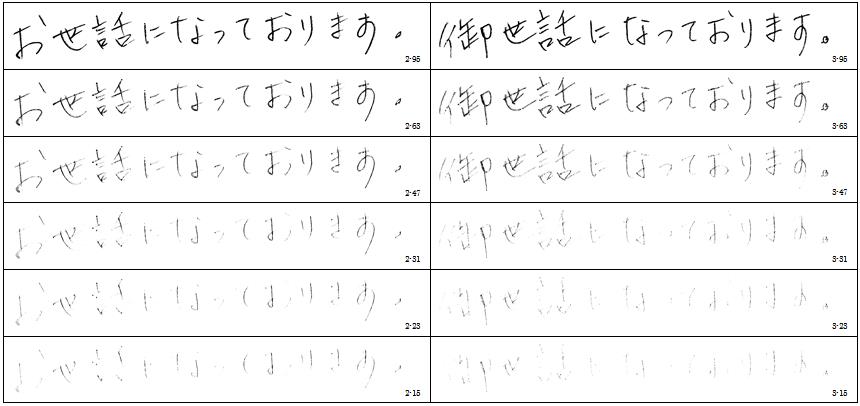 お世話になっております。 2-95
御世話になっております。 3-95
お世話になっております。 2-63
御世話になっております。 3-63
お世話になっております。 2-47
御世話になっております。 3-47
お世話になっております。 2-31
御世話になっております。 3-31
お世話になっております。 2-23
御世話になっております。 3-23
お世話になっております。 2-15
御世話になっております。 3-15